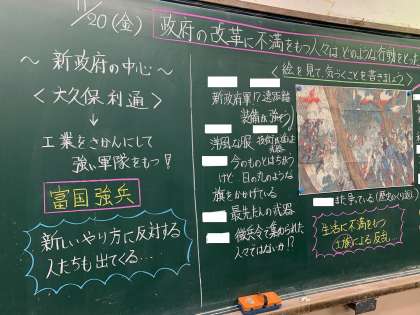 11/20(金)
政府の改革に不満をもつ人々は どのような行動をとった
〜 新政府の中心 〜
<大久保利通>
↓
工業をさかんにして
強い軍隊をもつ!
富国強兵
新しいやり方に反対する
人たちも出てくる...
<絵を見て、気づくことを書きましょう>
新政府軍
装備が強そう
洋風な服
今のものとはちがう
けど 日の丸のような
旗をかかげている
最先たんの武器
徴兵令で集められた
人々ではないか!?
また争っている
生活に不満をもつ
士族による反乱